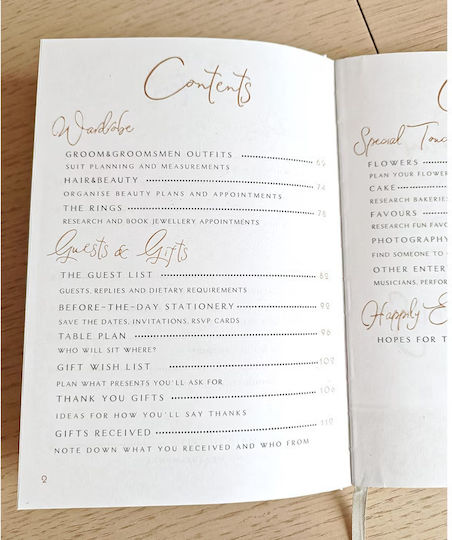 Contents
Wardrobe
GROOM&GROOMSMEN OUTFITS 62
SUIT PLANNING AND MEASUREMENTS
HAIR&BEAUTY 74
ORGANISE BEAUTY PLANS AND APPOINTMENTS
THE RINGS 78
RESEARCH AND BOOK JEWELLERY APPOINTMENTS
Guests & Gifts
THE GUEST LIST 82
GUESTS, REPLIES AND DIETARY REQUIREMENTS
BEFORE-THE-DAY STATIONERY
SAVE THE DATES, INVITATIONS, RSVP CARDS
TABLE PLAN 96
WHO WILL SIT WHERE?
GIFT WISH LIST 102
PLAN WHAT PRESENTS YOU'LL ASK FOR
THANK YOU GIFTS 106
IDEAS FOR HOW YOU'LL SAY THANKS
GIFTS RECEIVED 110
NOTE DOWN WHAT YOU RECEIVED AND WHO FROM
2
Special
FLOWERS
PLAN YOUR FLOWER
CAKE
RESEARCH BAKERIE
FAVOURS
RESEARCH FUN FAV
PHOTOGRAPHY
FIND SOMEONE TO
OTHER ENTER
MUSICIANS, PERFOR
Happily E
HOPES FOR T